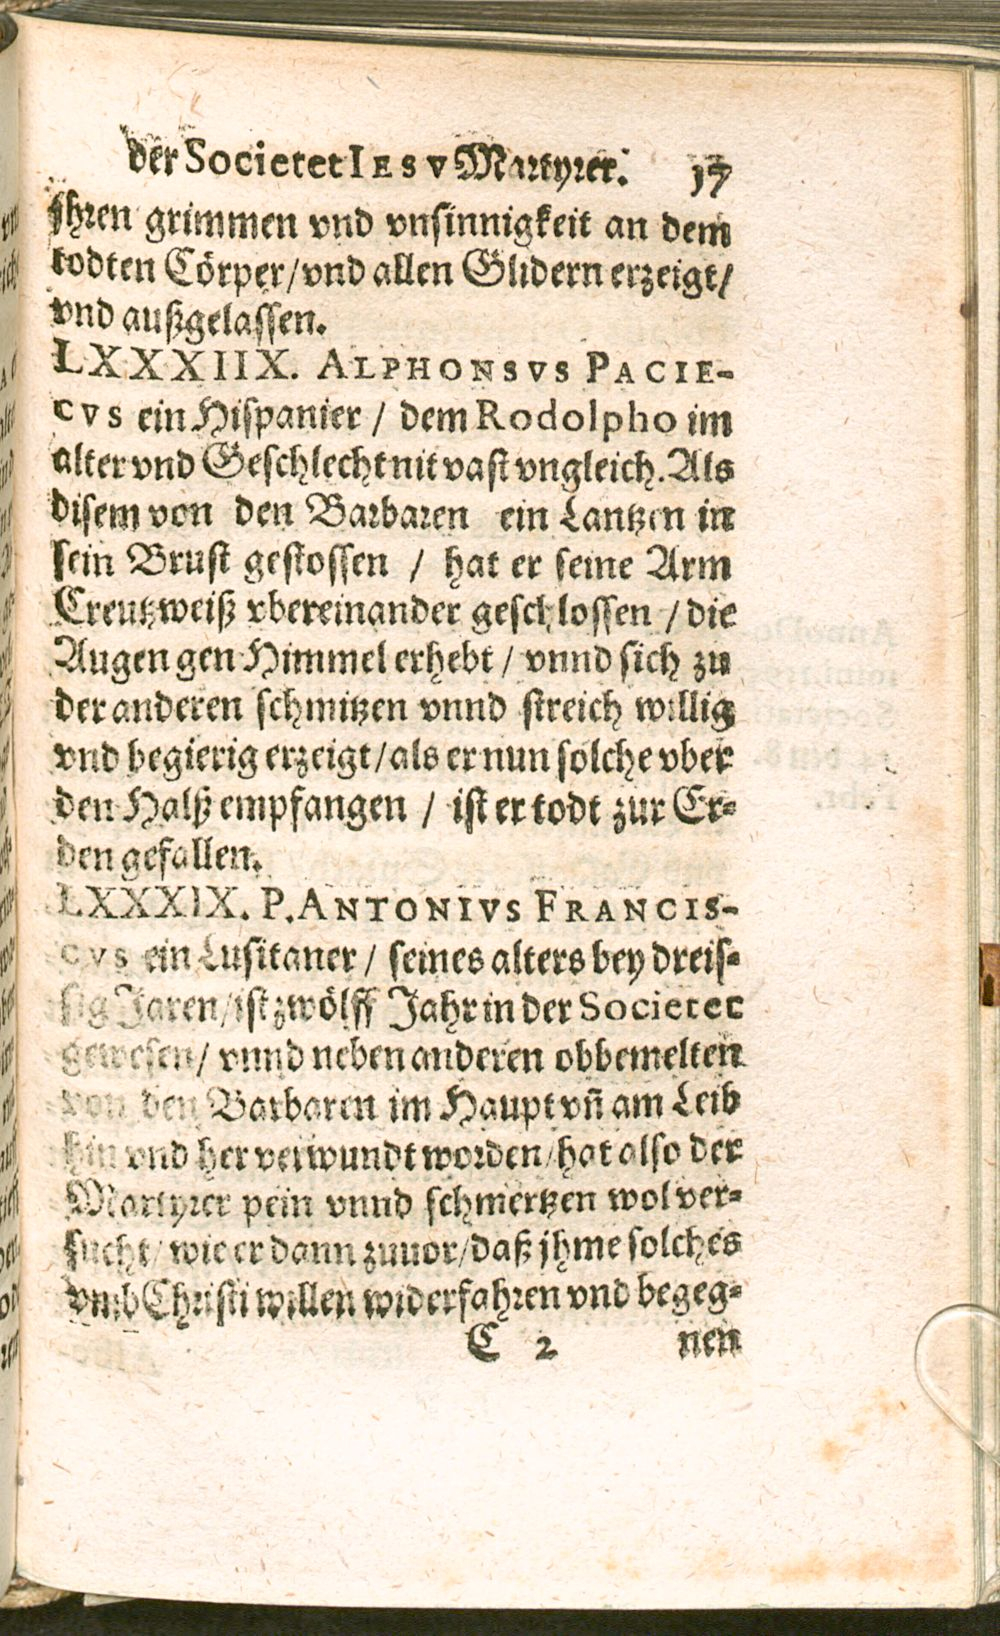 der Societet IESV Martyrer. 17
jhren grimmen vnd vnsinnigkeit an dem
todten Cörper/vnd allen Glidern erzeigt/
vnd außgelassen.
LXXXIIX. ALPHONSVS PACIE-
CVS ein Hispanier / dem Rodolpho im
alter vnd Geschlecht nit vast vngleich. Als
disem von den Barbaren ein Lantzen in
sein Brust gestossen / hat er seine Arm
Creutzweiß vbereinander geschlossen / die
Augen gen Himmel erhebt / vnnd sich zu
der anderen schmitzen vnnd streich willig
vnd begierig erzeigt/als er nun solche vber
den Halß empfangen / ist er todt zur Er-
den gefallen.
LXXXIX. P. ANTONIVS FRANCIS-
CVS ein Lusitaner / seines alters bey dreis-
sig Jaren/ist zwölff Jahr in der Societet
gewesen/ vnnd neben anderen obbemelten
von den Barbaren im Haupt vñ am Leib
hin vnd her verwundt worden/hat also der
Martyrer pein vnnd schmertzen wol ver-
sucht/ wie er dann zuuor/daß jhme solches
vmb Christi willen widerfahren vnd begeg-
C 2 nen